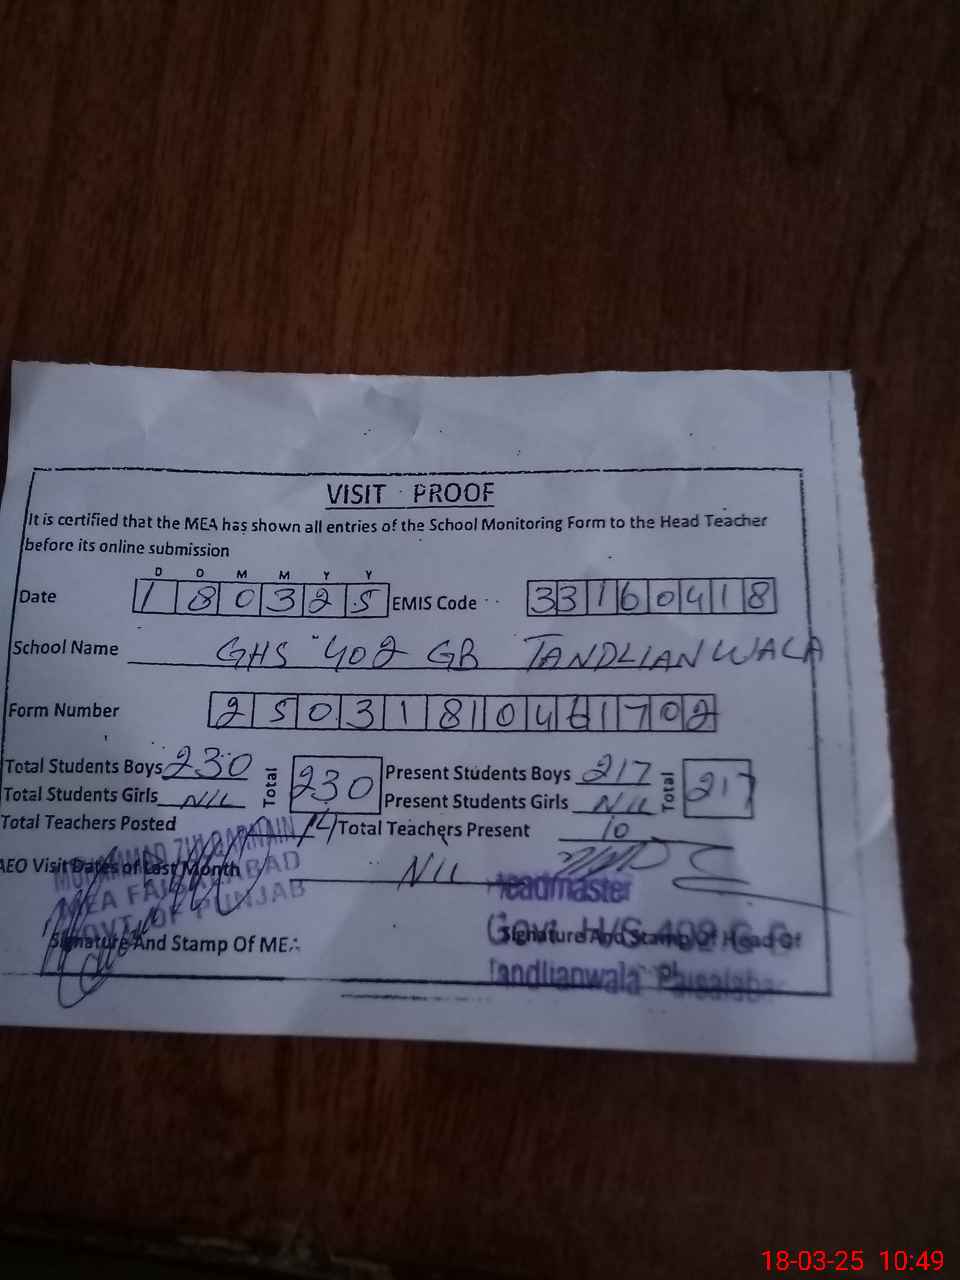 VISIT PROOF
It is certified that the MEA has shown all entries of the School Monitoring Form to the Head Teacher
before its online submission
D D M M Y Y
Date 1 8 0 3 2 5 EMIS Code 3 3 1 6 0 4 1 8
School Name GHS 402 GB TANDLIANWALA
Form Number 2 5 0 3 1 8 1 0 4 6 1 7 0 2
Total Students Boys 230 Total 230 Present Students Boys 217 Total 217
Total Students Girls NIL Present Students Girls NIL
Total Teachers Posted 14 Total Teachers Present 10
AEO Visit Dates of Last Month NIL
MUHAMMAD ZULQARNAIN
MEA FAISALABAD
GOVT. OF PUNJAB
Headmaster
Signature And Stamp Of MEA Signature And Stamp Of Head Of
Tandlianwala
18-03-25 10:49